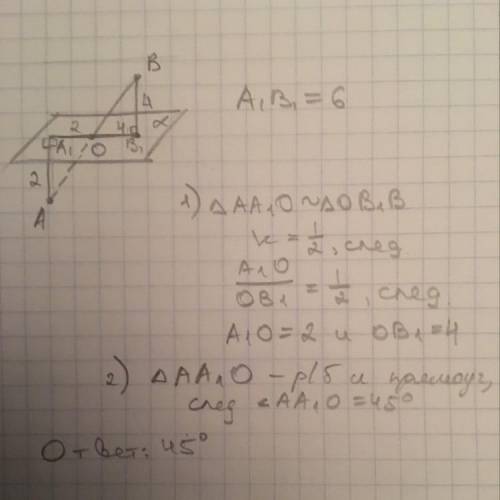 B
4
A₁B₁ = 6
2 4 α
A₁ O B₁
2
A
1) △AA₁O ~ △OB₁B
k = 1/2, след.
A₁O/OB₁ = 1/2, след.
A₁O = 2 и OB₁ = 4
2) △AA₁O – р/б и прямоуг,
след ∠AA₁O = 45°
Ответ: 45°